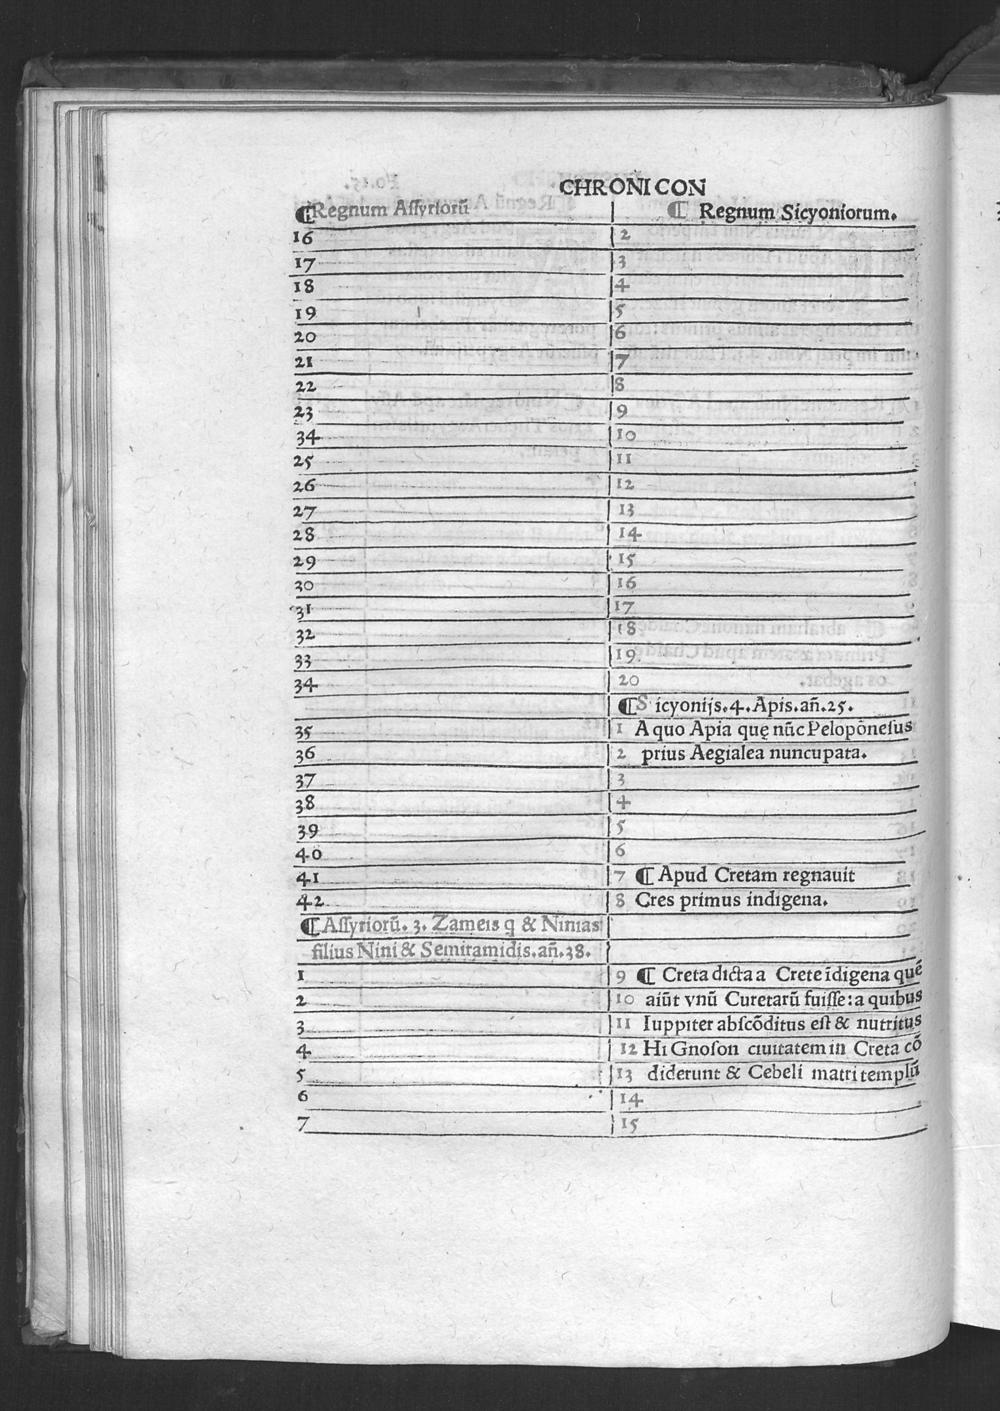 CHRONICON
¶Regnum Aſſyriorū ¶ Regnum Sicyoniorum.
16 2
17 3
18 4
19 5
20 6
21 7
22 8
23 9
34 10
25 11
26 12
27 13
28 14
29 15
30 16
31 17
32 18
33 19
34 20
¶Sicyonijs.4.Apis.añ.25.
35 1 A quo Apia quę nūc Pelopōneſus
36 2 prius Aegialea nuncupata.
37 3
38 4
39 5
40 6
41 7 ¶ Apud Cretam regnauit
42 8 Cres primus indigena.
¶Aſſyriorū. 3. Zameis q & Ninias
filius Nini & Semiramidis.añ.38.
1 9 ¶ Creta dicta a Crete īdigena quē
2 10 aiūt vnū Curetarū fuiſſe: a quibus
3 11 Iuppiter abſcōditus eſt & nutritus
4 12 Hi Gnoſon ciuitatem in Creta cō
5 13 diderunt & Cebeli matri templū
6 14
7 15